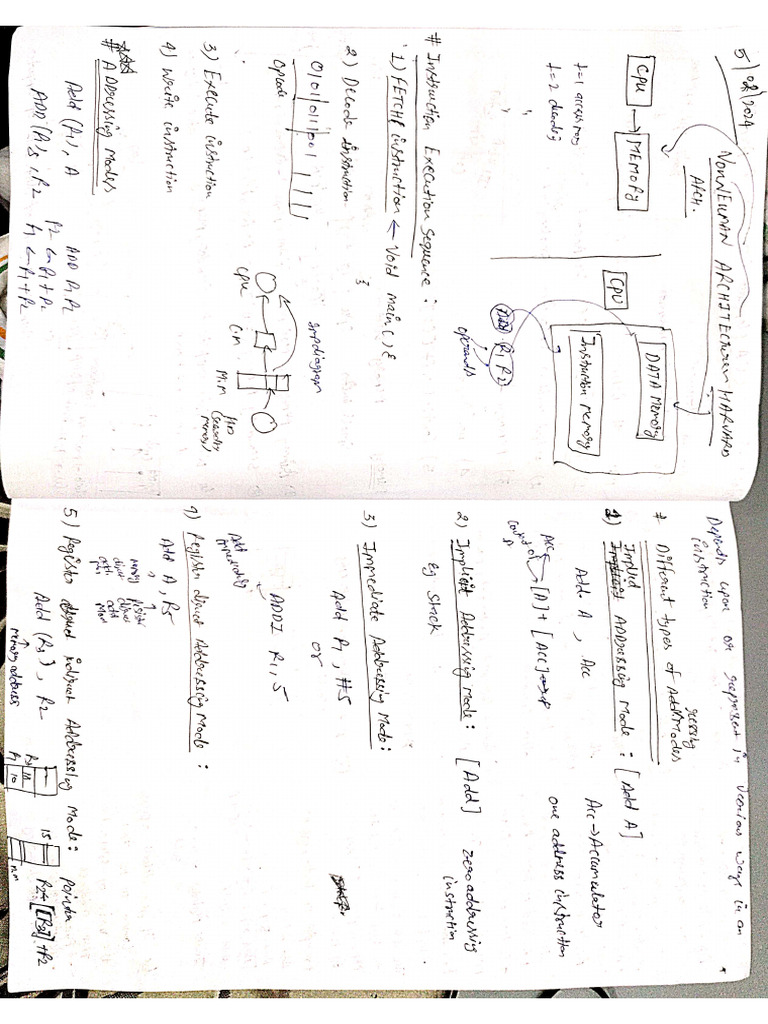 5/08/2024
VONNEUMAN ARCHITECTURE HARVARD
ARCH.
CPU → MEMORY
t=1 accessing
t=2 decoding
CPU
DATA Memory
Instruction memory
Add R1 R2
operands
# Instruction Execution Sequence :
1) FETCH instruction ← Void main( ) {
}
2) Decode Instruction
0101 011 1001
Opcode
Imp diagram
CPU
CM
M.M
(secondary memory)
3) Execute instruction
4) Write instruction
# ADDressing Modes
Add (R1), A
ADD R1 R2
R2 ← R1+R2
R1 ← R1+R2
Depends upon or represent in various ways in an
instruction
# Different types of Addressing Modes
1) Implied ADDressing Mode : [Add A]
Add A , Acc
Acc → Accumulator
Acc ← [A] + [Acc]
Content of
one address instruction
2) Implicit Addressing Mode : [Add]
zero addressing
instruction
Eg Stack
3) Immediate Addressing Mode :
Add R1, #5
or
ADDI R1, 5
Add immediately
4) Register direct Addressing Mode :
Add A, R5
5) Register direct indirect Addressing Mode : pointer
Add (R3), R2
memory address
R1 10
15
R2 ← [[R3]] + R2
M.M